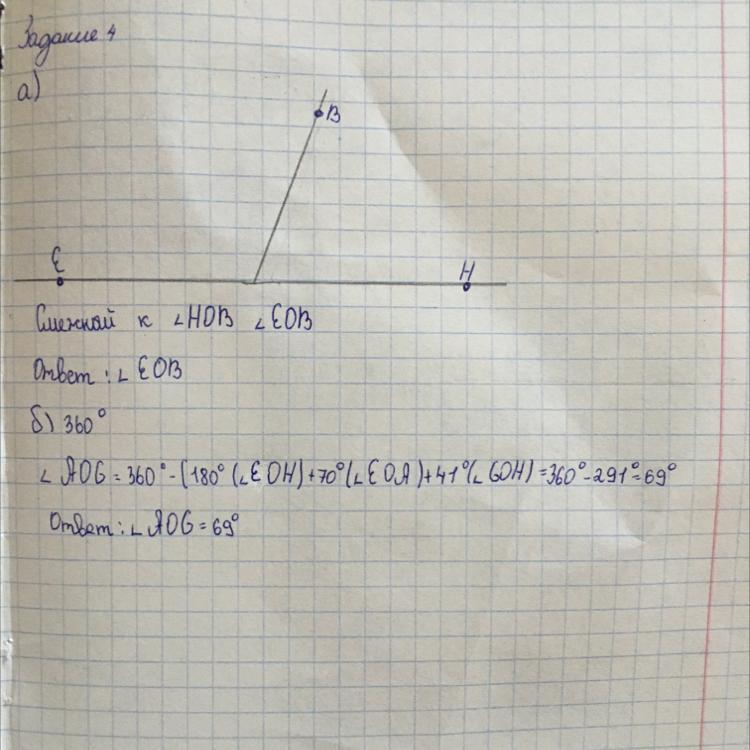 Задание 4
а)
B
E
H
Смежной к ∠HOB ∠EOB
Ответ: ∠EOB
б) 360°
∠AOG = 360° - (180° (∠EOH) + 70° (∠EOA) + 41° (∠GOH) = 360° - 291° = 69°
Ответ: ∠AOG = 69°